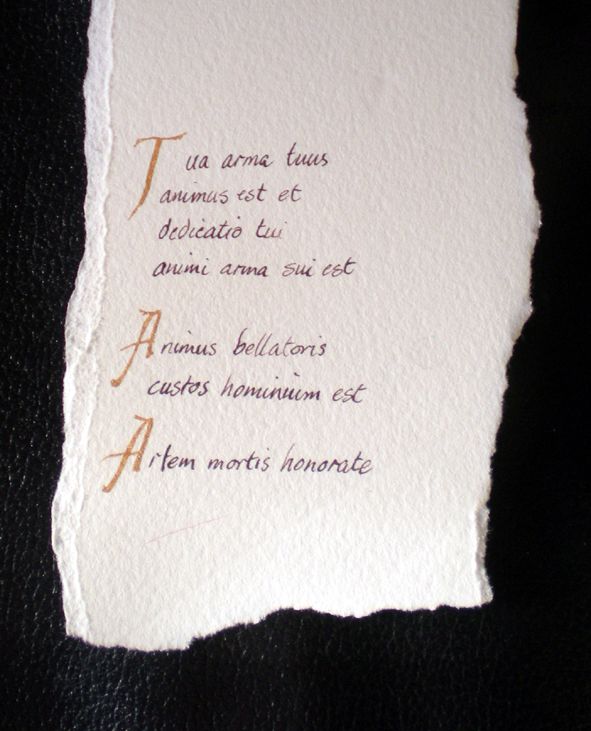 Tua arma tuus
animus est et
dedicatio tui
animi arma sui est
Animus bellatoris
custos hominium est
Artem mortis honorate